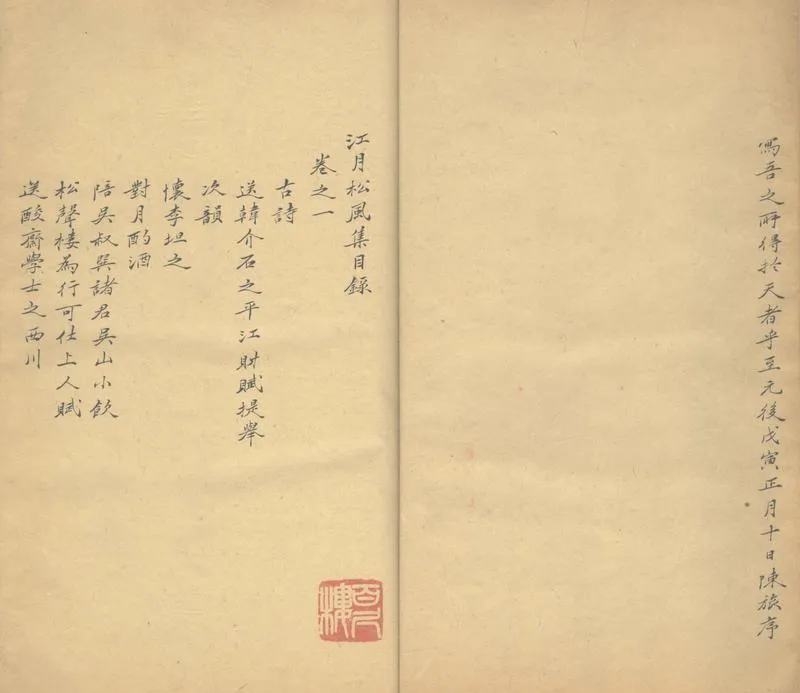 寫吾之所得於天者乎至元後戊寅正月十日陳旅序
江月松風集目錄
卷之一
古詩
送韓介石之平江財賦提舉
次韻
懷李坦之
對月酌酒
陪吳叔巽諸君吳山小飲
松聲樓為行可仕上人賦
送酸齋學士之西川